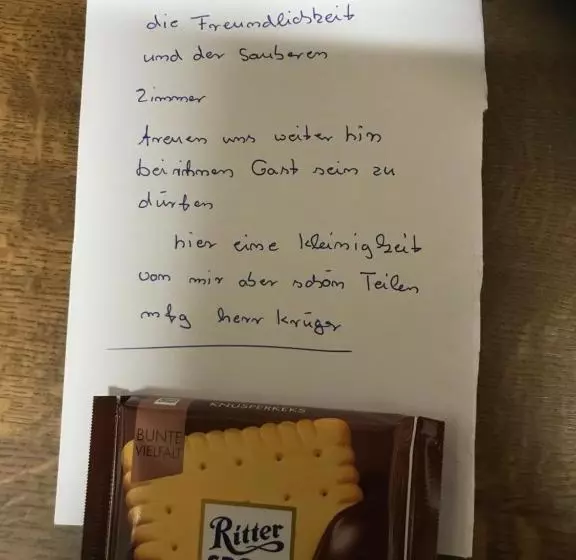 die Freundlichkeit
und der Sauberen
Zimmer
freuen uns weiter hin
bei ihnen Gast sein zu
dürfen
hier eine kleinigkeit
von mir aber schön Teilen
mfg herr krüger
KNUSPERKEKS
BUNTE
VIELFALT
Ritter